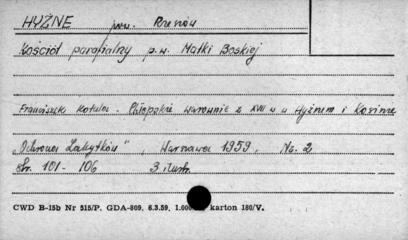 HYŻNE pow. Rzeszów
Kościół parafialny p.w. Matki Boskiej
Franciszek Kotula - Chłopskie warownie z XVII w w Hyżnem i
„Ochrona Zabytków”, Warszawa 1959, Nr. 2
Str. 101 - 106 3 ilustr.
CWD B-15b Nr 515/P. GDA-809. 6.3.59. 1.000 karton 180/V.